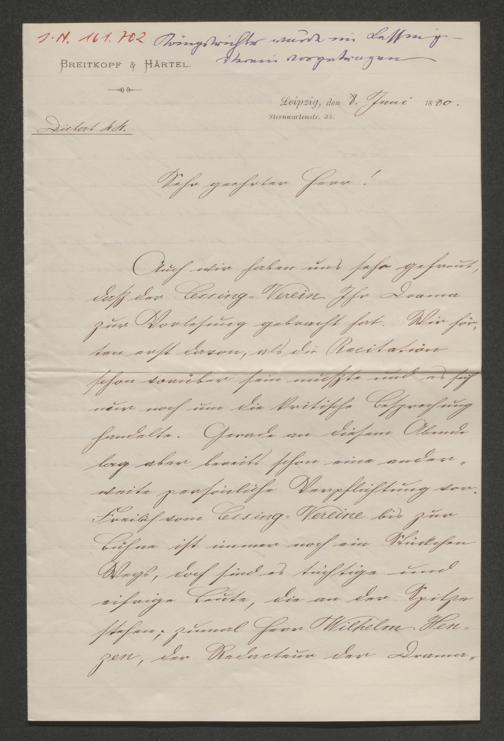 J. N. 161.702 Königsrichter wurde im Lessing-
Verein vorgetragen
BREITKOPF & HÄRTEL.
Leipzig, den 8. Juni 1880.
Sternwartenstr. 35.
Sehr geehrter Herr!
Auch wir haben uns sehr gefreut,
daß der Lessing-Verein Ihr Drama
zur Vorlesung gebracht hat. Wir hör-
ten erst davon, als die Recitation
schon vorüber sein mußte und es sich
nur noch um die kritische Besprechung
handelte. Gerade an diesem Abende
lag aber bereits schon eine ander-
weite persönliche Verpflichtung vor.
Freilich vom Lessing-Vereine bis zur
Bühne ist immer noch ein Stückchen
Wegs, doch sind es tüchtige und
eifrige Leute, die an der Spitze
stehen, zumal Herr Wilhelm Hen-
zen, der Redacteur der Drama-